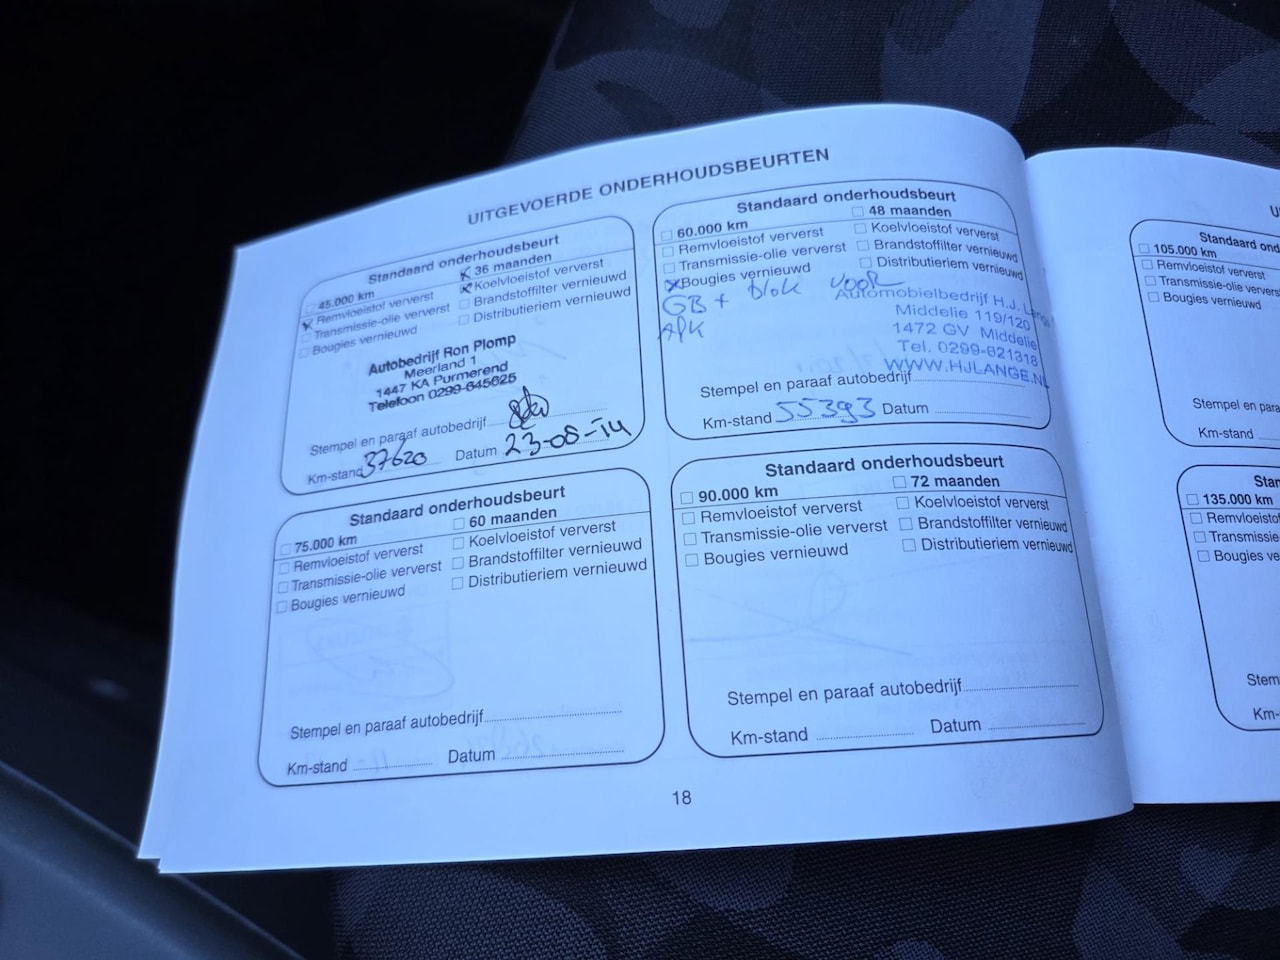 UITGEVOERDE ONDERHOUDSBEURTEN
Standaard onderhoudsbeurt
45.000 km 36 maanden
Remvloeistof ververst Koelvloeistof ververst
Transmissie-olie ververst Brandstoffilter vernieuwd
Bougies vernieuwd Distributieriem vernieuwd
Autobedrijf Ron Plomp
Meerland 1
1447 KA Purmerend
Telefoon 0299-645625
Stempel en paraaf autobedrijf
Km-stand 37620 Datum 23-08-14
Standaard onderhoudsbeurt
60.000 km 48 maanden
Remvloeistof ververst Koelvloeistof ververst
Transmissie-olie ververst Brandstoffilter vernieuwd
Bougies vernieuwd Distributieriem vernieuwd
GB + blok voor
APK
Automobielbedrijf H.J. Lange
Middelie 119/120
1472 GV Middelie
Tel. 0299-621318
WWW.HJLANGE.NL
Stempel en paraaf autobedrijf
Km-stand 55393 Datum
Standaard onderhoudsbeurt
75.000 km 60 maanden
Remvloeistof ververst Koelvloeistof ververst
Transmissie-olie ververst Brandstoffilter vernieuwd
Bougies vernieuwd Distributieriem vernieuwd
Stempel en paraaf autobedrijf
Km-stand Datum
Standaard onderhoudsbeurt
90.000 km 72 maanden
Remvloeistof ververst Koelvloeistof ververst
Transmissie-olie ververst Brandstoffilter vernieuwd
Bougies vernieuwd Distributieriem vernieuwd
Stempel en paraaf autobedrijf
Km-stand Datum
18
Standaard ond
105.000 km
Remvloeistof ververst
Transmissie-olie
Bougies vernieuwd
Stempel en para
Km-stand
Stan
135.000 km
Remvloeistof
Transmissie
Bougies ve
Stem
Km-